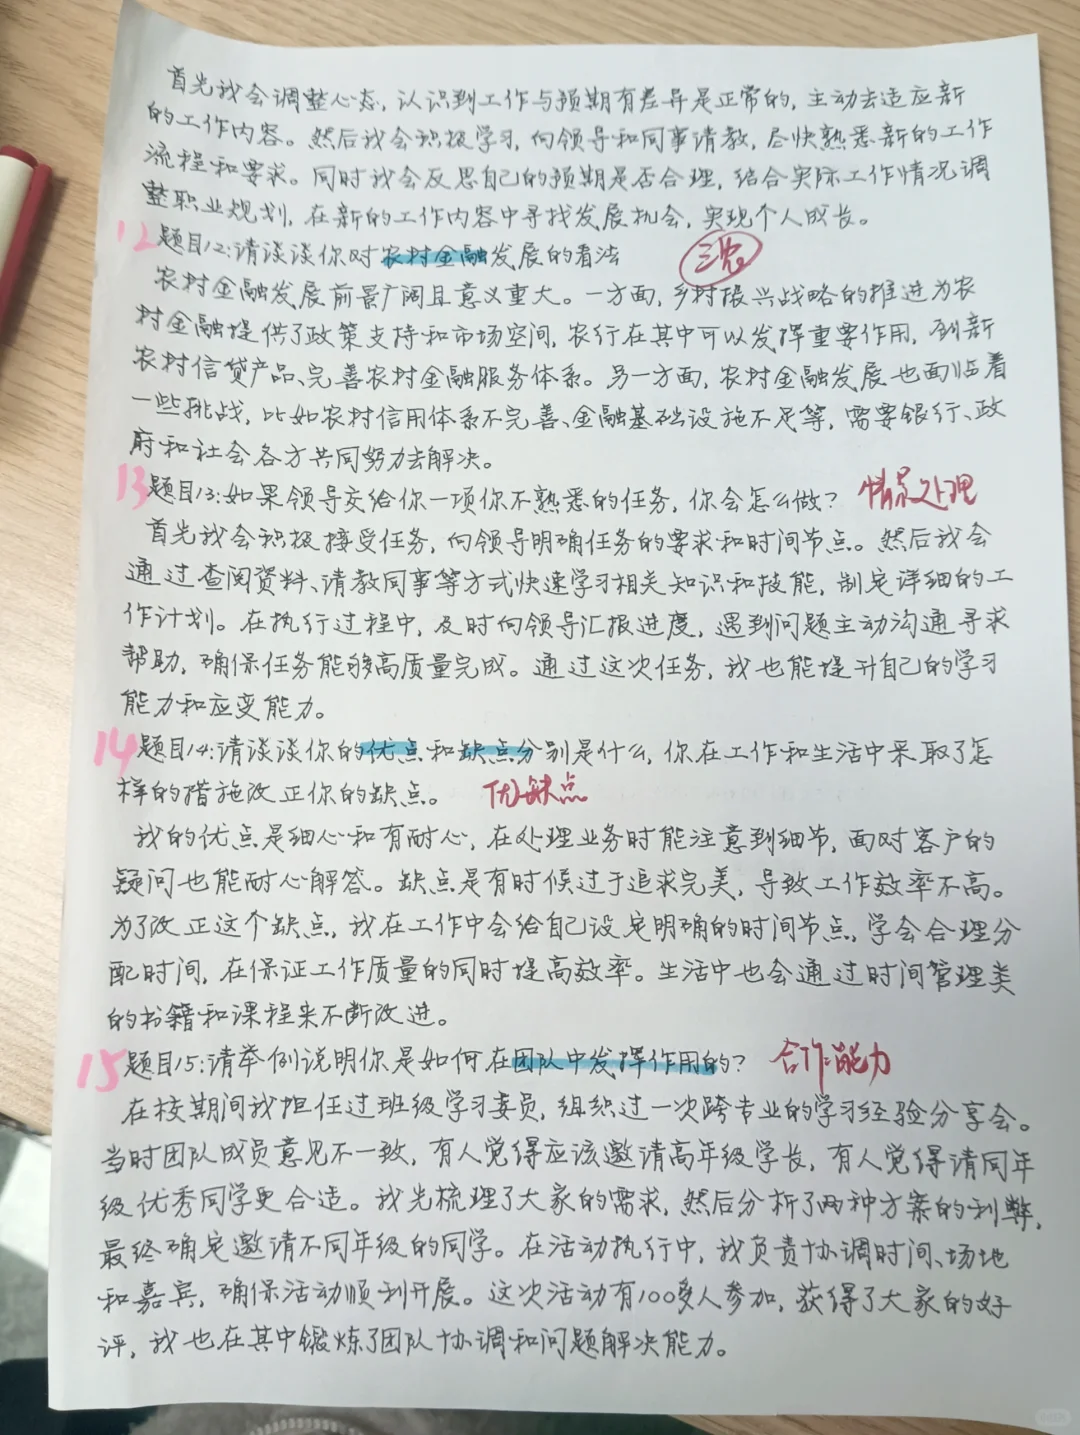 首先我会调整心态，认识到工作与预期有差异是正常的，主动去适应新
的工作内容。然后我会积极学习，向领导和同事请教，尽快熟悉新的工作
流程和要求。同时我会反思自己的预期是否合理，结合实际工作情况调
整职业规划，在新的工作内容中寻找发展机会，实现个人成长。
12 题目12：请谈谈你对农村金融发展的看法 三农
农村金融发展前景广阔且意义重大。一方面，乡村振兴战略的推进为农
村金融提供了政策支持和市场空间，农行在其中可以发挥重要作用，创新
农村信贷产品、完善农村金融服务体系。另一方面，农村金融发展也面临着
一些挑战，比如农村信用体系不完善、金融基础设施不足等，需要银行、政
府和社会各方共同努力去解决。
13 题目13：如果领导交给你一项你不熟悉的任务，你会怎么做？ 情景处理
首先我会积极接受任务，向领导明确任务的要求和时间节点。然后我会
通过查阅资料、请教同事等方式快速学习相关知识和技能，制定详细的工
作计划。在执行过程中，及时向领导汇报进度，遇到问题主动沟通寻求
帮助，确保任务能够高质量完成。通过这次任务，我也能提升自己的学习
能力和应变能力。
14 题目14：请谈谈你的优点和缺点分别是什么，你在工作和生活中采取了怎
样的措施改正你的缺点。 优缺点
我的优点是细心和有耐心，在处理业务时能注意到细节，面对客户的
疑问也能耐心解答。缺点是有时候过于追求完美，导致工作效率不高。
为了改正这个缺点，我在工作中会给自己设定明确的时间节点，学会合理分
配时间，在保证工作质量的同时提高效率。生活中也会通过时间管理类
的书籍和课程来不断改进。
15 题目15：请举例说明你是如何在团队中发挥作用的？ 合作能力
在校期间我担任过班级学习委员，组织过一次跨专业的学习经验分享会。
当时团队成员意见不一致，有人觉得应该邀请高年级学长，有人觉得请同年
级优秀同学更合适。我先梳理了大家的需求，然后分析了两种方案的利弊，
最终确定邀请不同年级的同学。在活动执行中，我负责协调时间、场地
和嘉宾，确保活动顺利开展。这次活动有100多人参加，获得了大家的好
评，我也在其中锻炼了团队协调和问题解决能力。